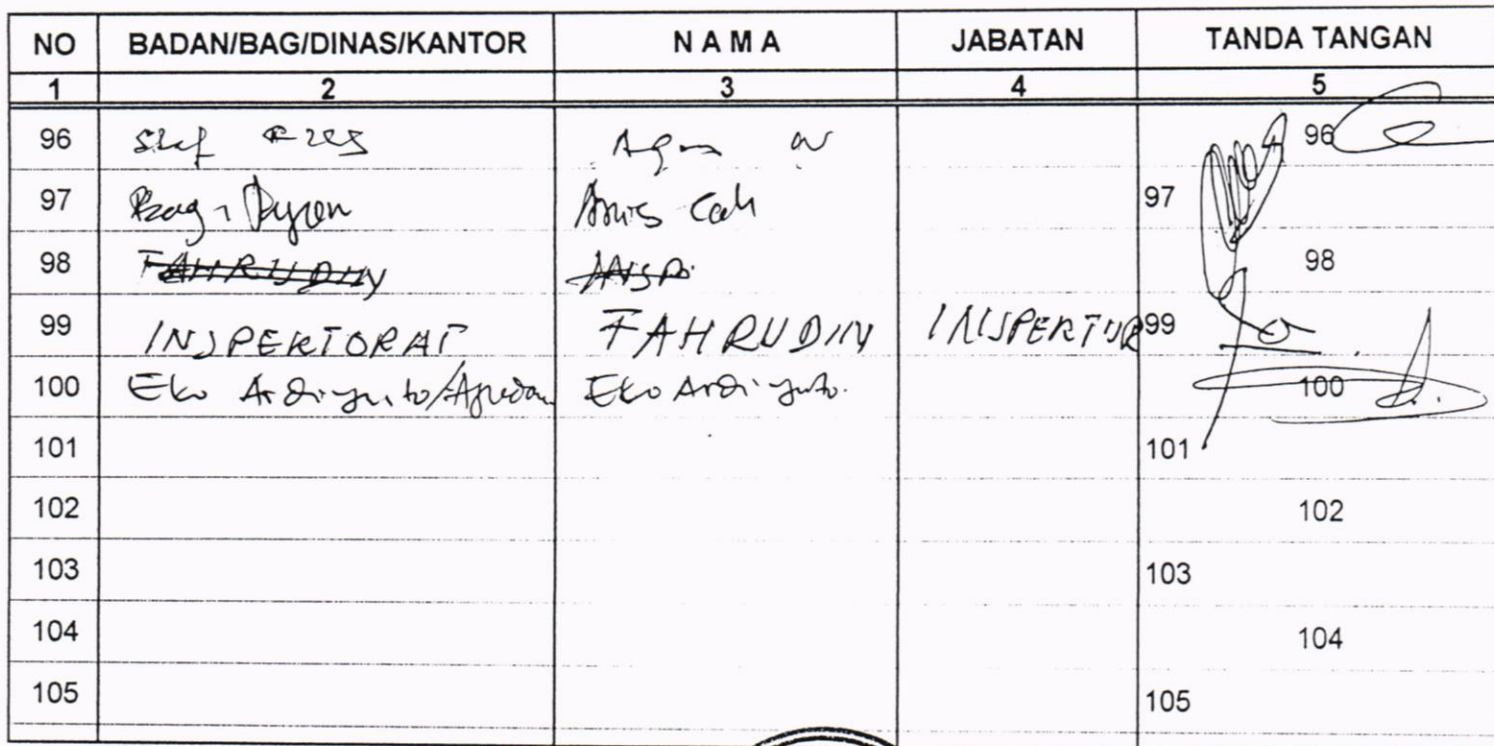 NO BADAN/BAG/DINAS/KANTOR N A M A JABATAN TANDA TANGAN
1 2 3 4 5
96 96
97 97
98 FAHRUDIN 98
99 INSPEKTORAT FAHRUDIN INSPEKTUR 99
100 Eko Ardiyanto/ Eko Ardiyanto. 100
101 101
102 102
103 103
104 104
105 105